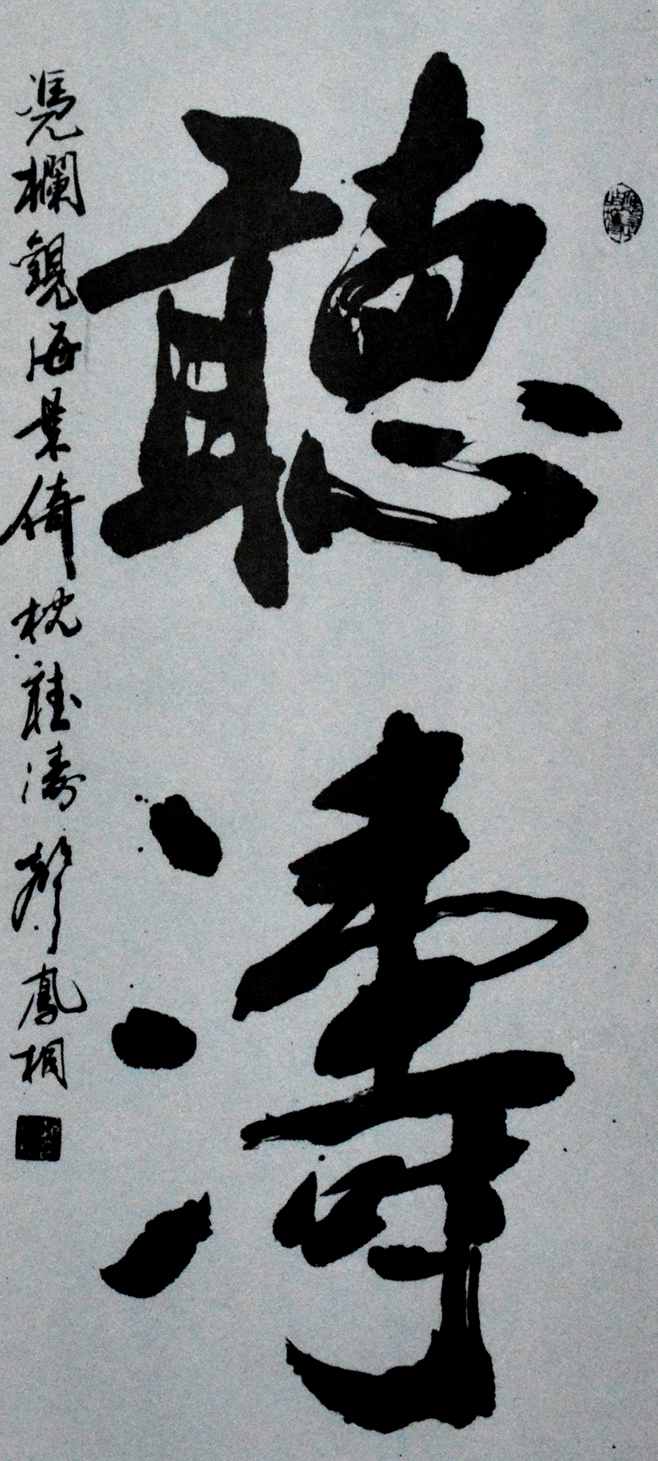 聽濤
凭欄觀海景倚枕聽濤聲鳳桐